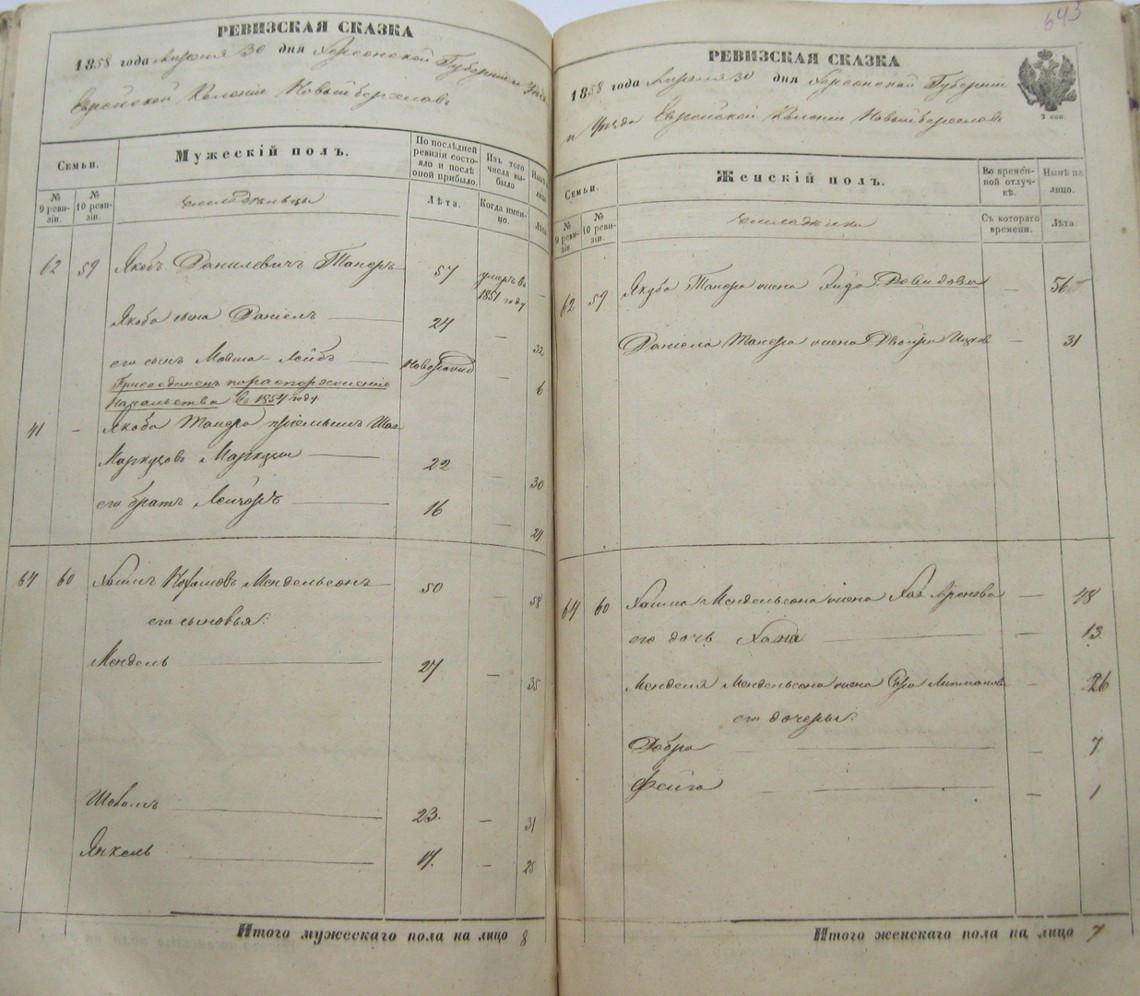 РЕВИЗСКАЯ СКАЗКА
1858 года Апреля 30 дня Херсонской Губерніи и
Еврейской Колоніи Новый Береславъ
Семьи.
Мужескій полъ.
По послѣдней ревизіи состояло и послѣ оной прибыло.
Изъ того числа выбыло
№ 9 ревизіи.
№ 10 ревизіи.
Лѣта.
Когда именно.
Лѣта
62 59 Якобъ Данилевичъ Танеръ 57 умеръ въ 1851 году –
Якоба сынъ Даніель 24 – 32
его сынъ Мовша-Лейбъ – 6
Присоединенъ по распоряженію
Начальства въ 1854 году
41 – Якоба Танера пріемышъ
Маркусовъ 22 – 30
его братъ 16 – 24
64 60 Хаимъ Мендельсонъ 50 – 58
его сыновья:
Мендель 27 – 35
23. – 31
Янкель 17. – 25
Итого мужескаго пола на лицо 8
643
РЕВИЗСКАЯ СКАЗКА
1858 года Апреля 30 дня Херсонской Губерніи
и Уезда Еврейской Колоніи Новый Береславъ
2 коп.
Семьи.
Женскій полъ.
Во временной отлучкѣ.
Нынѣ на лицо.
№ 9 ревизіи.
№ 10 ревизіи.
Съ котораго времени.
Лѣта.
62 59 Якуба Танера жена Давидова – 56
Даніела Танера жена Двойра Ицкова – 31
64 60 Хаима Мендельсона жена Хая Аронова – 48
его дочь Хана – 13
Менделя Мендельсона жена Липманова – 26
его дочеры:
Добра – 7
Фейга – 1
Итого женскаго пола на лицо 7